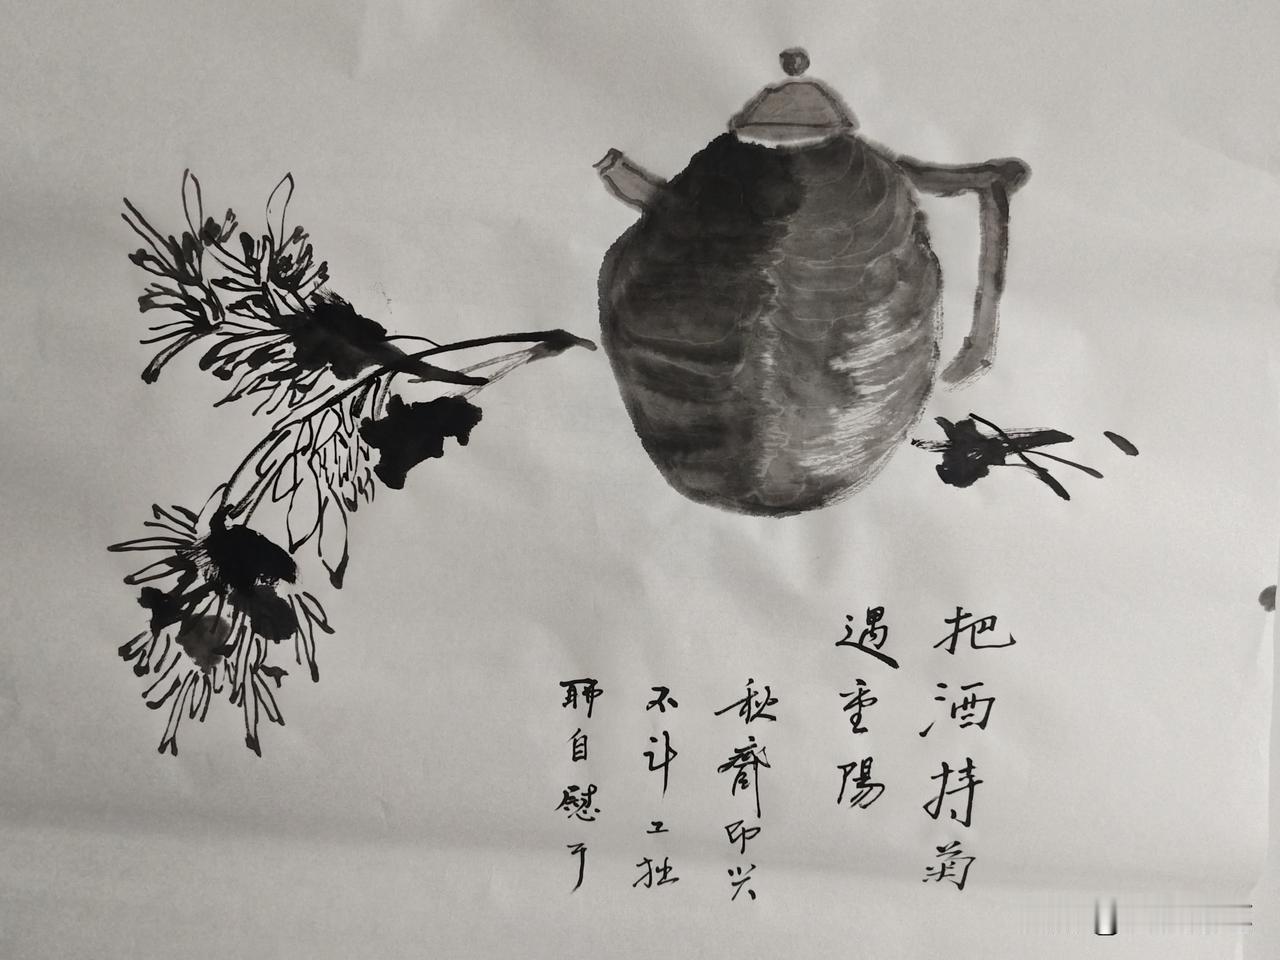 把酒持菊
遇重陽
秋齋即兴
不计工拙
聊自慰于